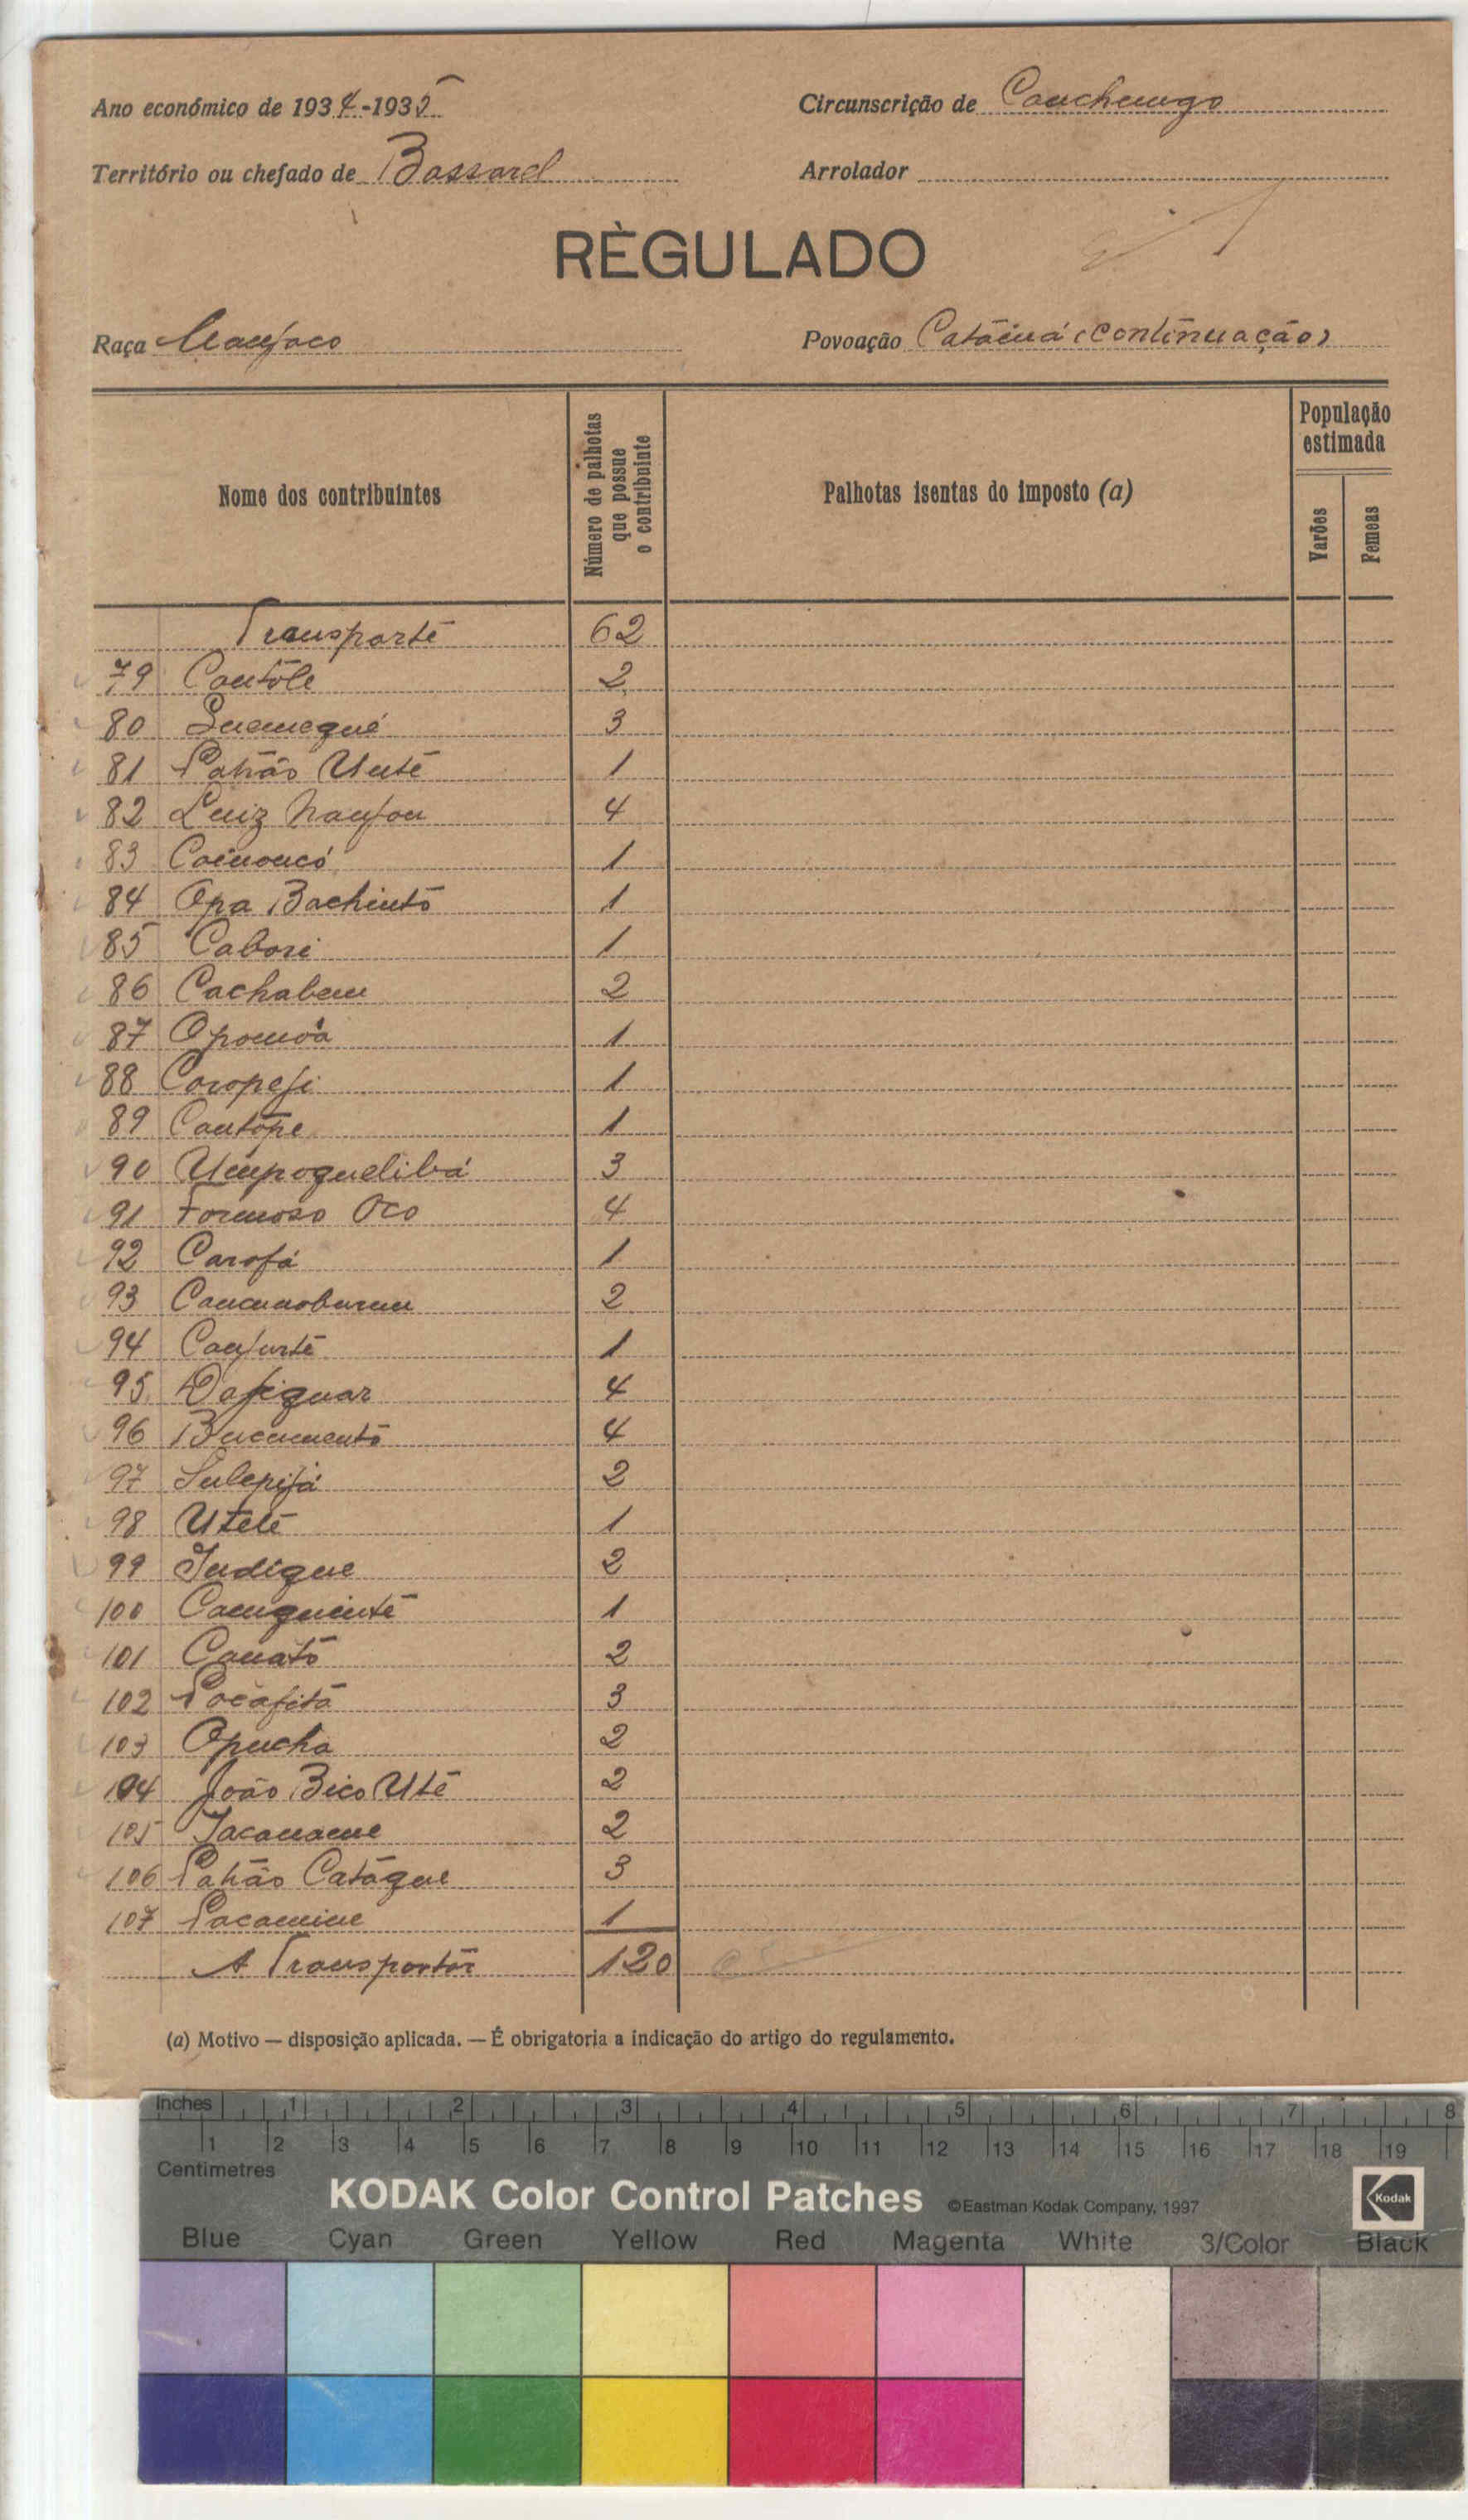 Ano económico de 1934-1935
Circunscrição de Canchungo
Território ou chefado de Bassarel
Arrolador
RÈGULADO
Raça Manjaco
Povoação Catàiná (continuação)
Nome dos contribuintes
Número de palhotas que possue o contribuinte
Palhotas isentas do imposto (a)
População estimada
Varões
Femeas
Transporte 62
79 Cantóle 2
80 3
81 Patrão Unté 1
82 Luiz Naufon 4
83 1
84 Opa Bachintó 1
85 Cabori 1
86 Cachabem 2
87 Opomóa 1
88 Coropefi 1
89 Cantope 1
90 Umpoquelibá 3
91 Formoso Oco 4
92 Carofá 1
93 2
94 Canfurté 1
95 Dafiguar 4
96 Bucumentó 4
97 Sulepifá 2
98 Utelé 1
99 Indigue 2
100 Canguinté 1
101 Canató 2
102 Pocafitá 3
103 Opucha 2
104 João Bico Uté 2
105 2
106 Patrão Catágue 3
107 Pacamine 1
A Transportar 120
(a) Motivo — disposição aplicada. — É obrigatoria a indicação do artigo do regulamento.
Inches 1 2 3 4 5 6 7 8
1 2 3 4 5 6 7 8 9 10 11 12 13 14 15 16 17 18 19
Centimetres
KODAK Color Control Patches ©Eastman Kodak Company, 1997 Kodak
Blue Cyan Green Yellow Red Magenta White 3/Color Black